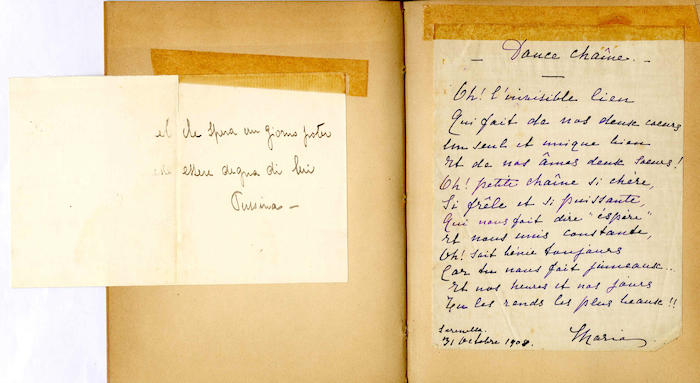 el che spera un giorno poter
essere degna di lui
Pussina —
— Douce chaîne. —
Oh! l'invisible lien
Qui fait de nos deux coeurs
Un seul et unique bien
Et de nos âmes deux soeurs!
Oh! petite chaîne si chère,
Si frêle et si puissante,
Qui nous fait dire "éspère"
Et nous unis constante,
Oh! soit bénie toujours
Car tu nous fait jumeaux...
Et nos heures et nos jours
Tu les rends les plus beaux!!
31 Octobre 1908
Maria